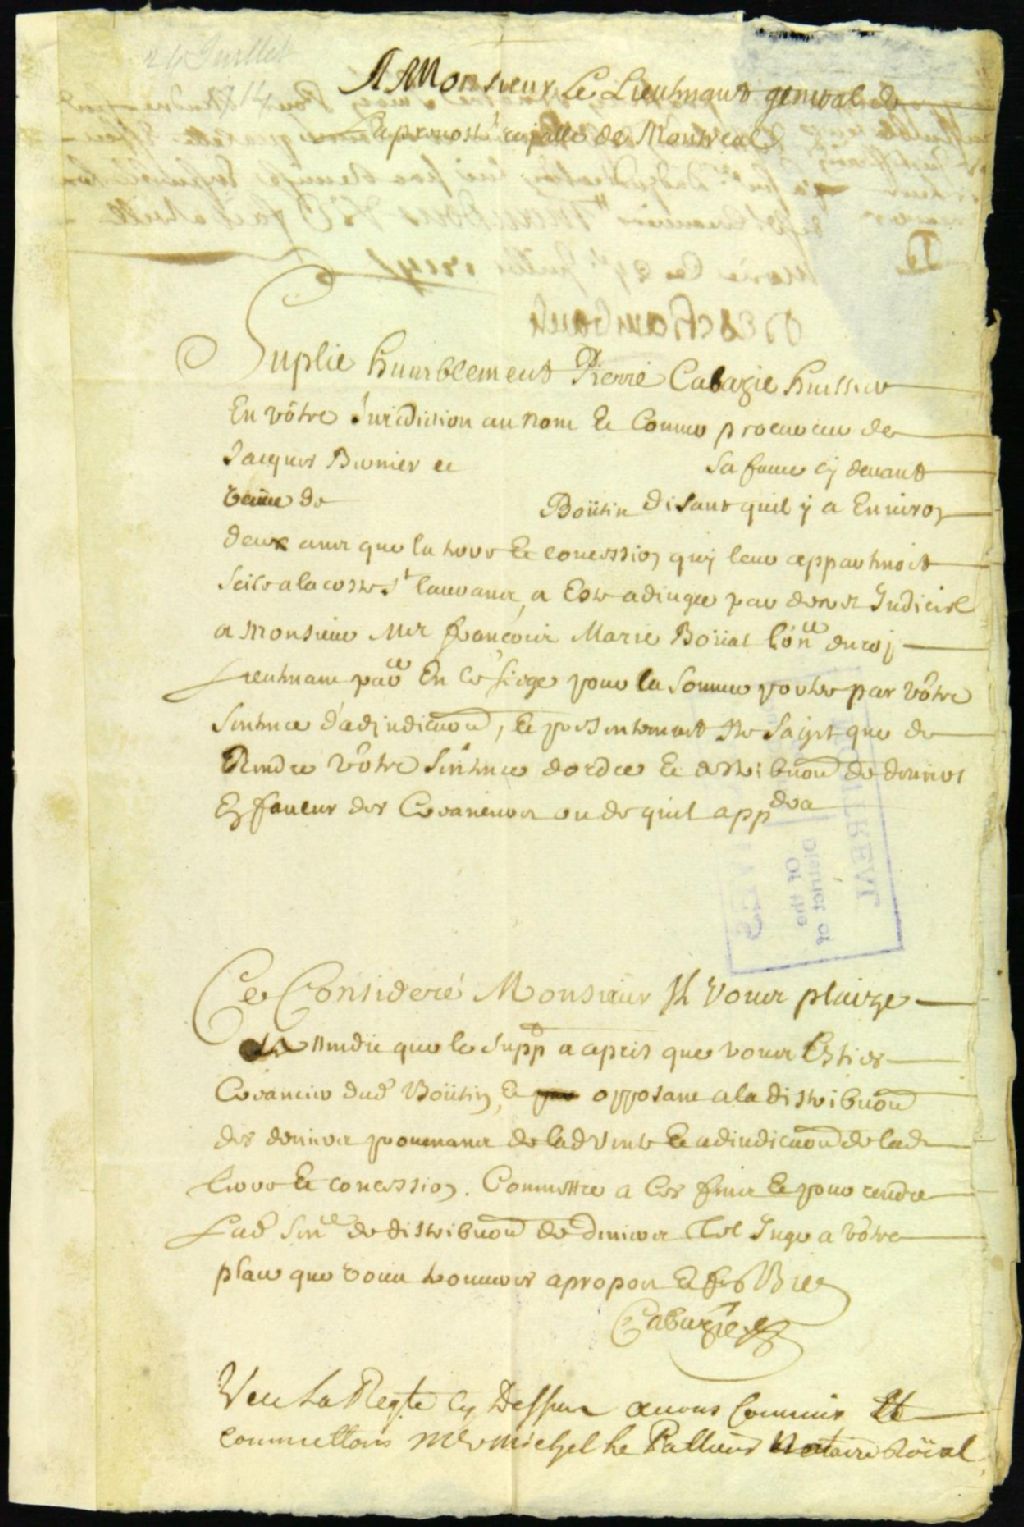 24 Juillet
1714
A Monsieur Le Lieutenant general de
La prevosté royalle de Montreal
Suplie humblement Pierre Cabazie huissier
En vôtre Juridiction au nom Et Comme procureur de
Jacques Brunier et sa feme cy devant
veuve de Boütin disant quil y a Environ
deux ans que la terre Et concession quy leur appartenoit
Scise a la coste St laurans, a Este adjugée par decret Judiciel
a Monsieur Mre francois Marie Boüat Coner du roy
Lieutenant par En ce siege pour la somme portée par vôtre
Sentence d'adjudicaon, Et presentement Il ne sagit que de
Rendre vôtre Sentence dordre Et distribuon de deniers
En faveur des Creanciers ou de quil appdra
Ce Consideré Monsieur Il Vous plaize
attendu que le suppt a apris que vous Esties
Creancier dud Boütin, Et opposant a la distribuon
des deniers provenans de lad vente Et adjudicaon de lad
terre Et concession. Commettre a Ces fins Et pour rendre
Lad Sence de distribuon de deniers Tel Juge a vôtre
place que vous trouverez apropos Et fes Bien
Cabazie
Veu La Reqte Cy Dessus avons Commis Et
commettons Me michel Le Pallieur Notaire Roïal